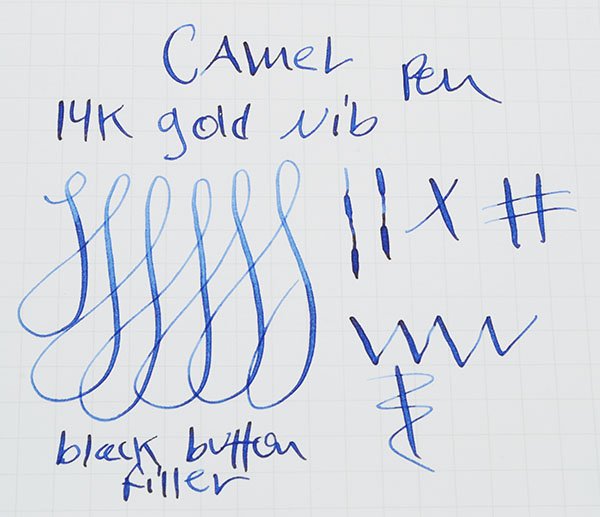 Camel Pen
14K gold nib
X #
black button
filler